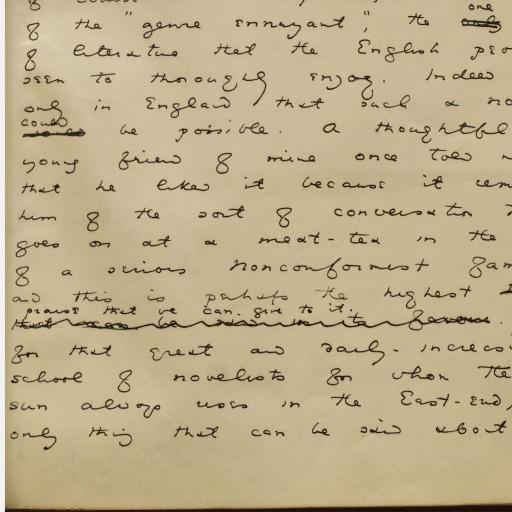 of the "genre ennuyant", the one
of literature that the English peo
seem to thoroughly enjoy. Indeed
only in England that such a no
could be possible. A thoughtful
young friend of mine once told
that he liked it because it rem
him of the sort of conversation
goes on at a meat-tea in the
of a serious Nonconformist fam
and this is perhaps the highest
praise that we can give to it.
that can be said in its favour.
for that great and daily-increas
school of novelists for whom the
sun always rises in the East-end,
only thing that can be said about